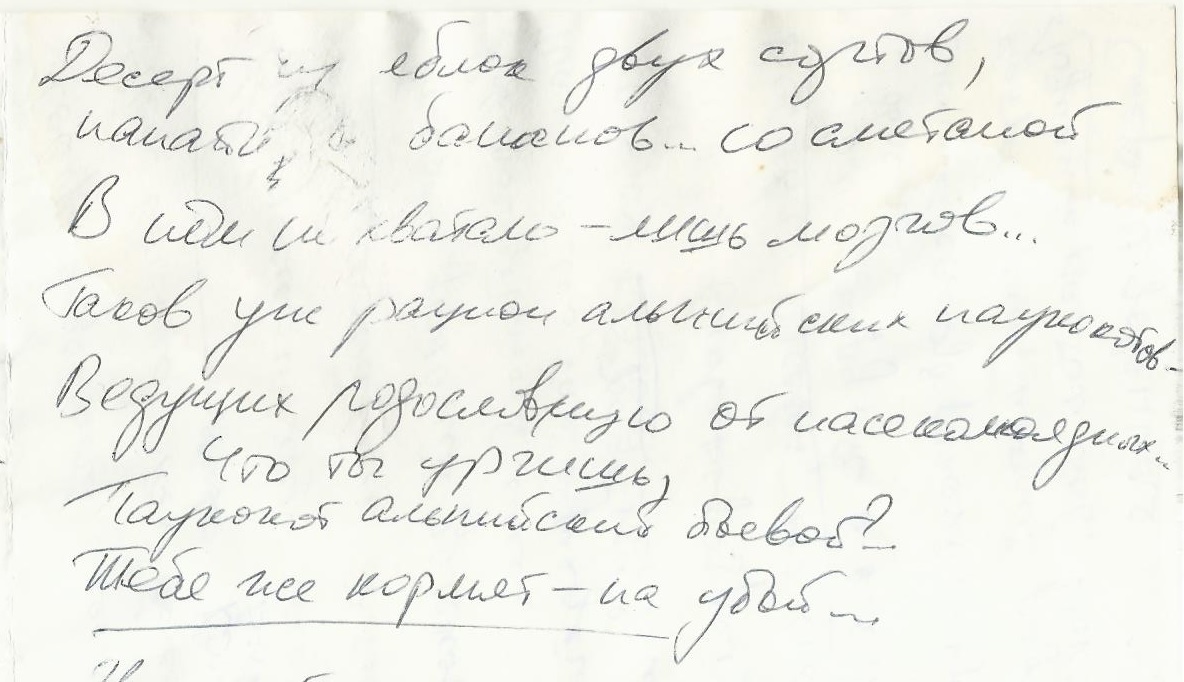 Десерт из яблок двух сортов,
бананов... со сметаной
В нём не хватало – лишь мозгов...
Таков уж рацион альпийских паукокотов –
Ведущих родословную от насекомоядных...
Что ты урчишь,
Паукокот альпийский боевой?...
Тебя же кормят – на убой...